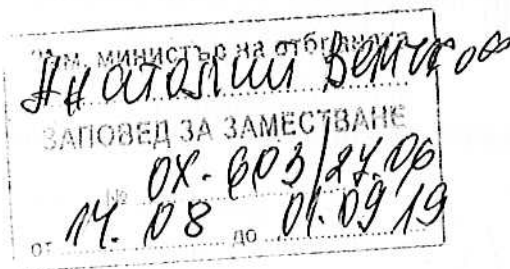 Зам. министър на отбраната
Анатолий Величков
ЗАПОВЕД ЗА ЗАМЕСТВАНЕ
№ ОХ-603/27.06
от 14.08 до 01.09.19